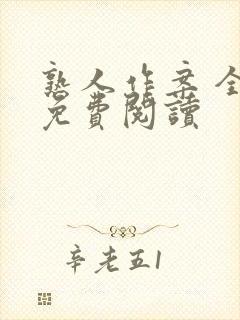 熟人作案全
免費閱讀
辛老五1